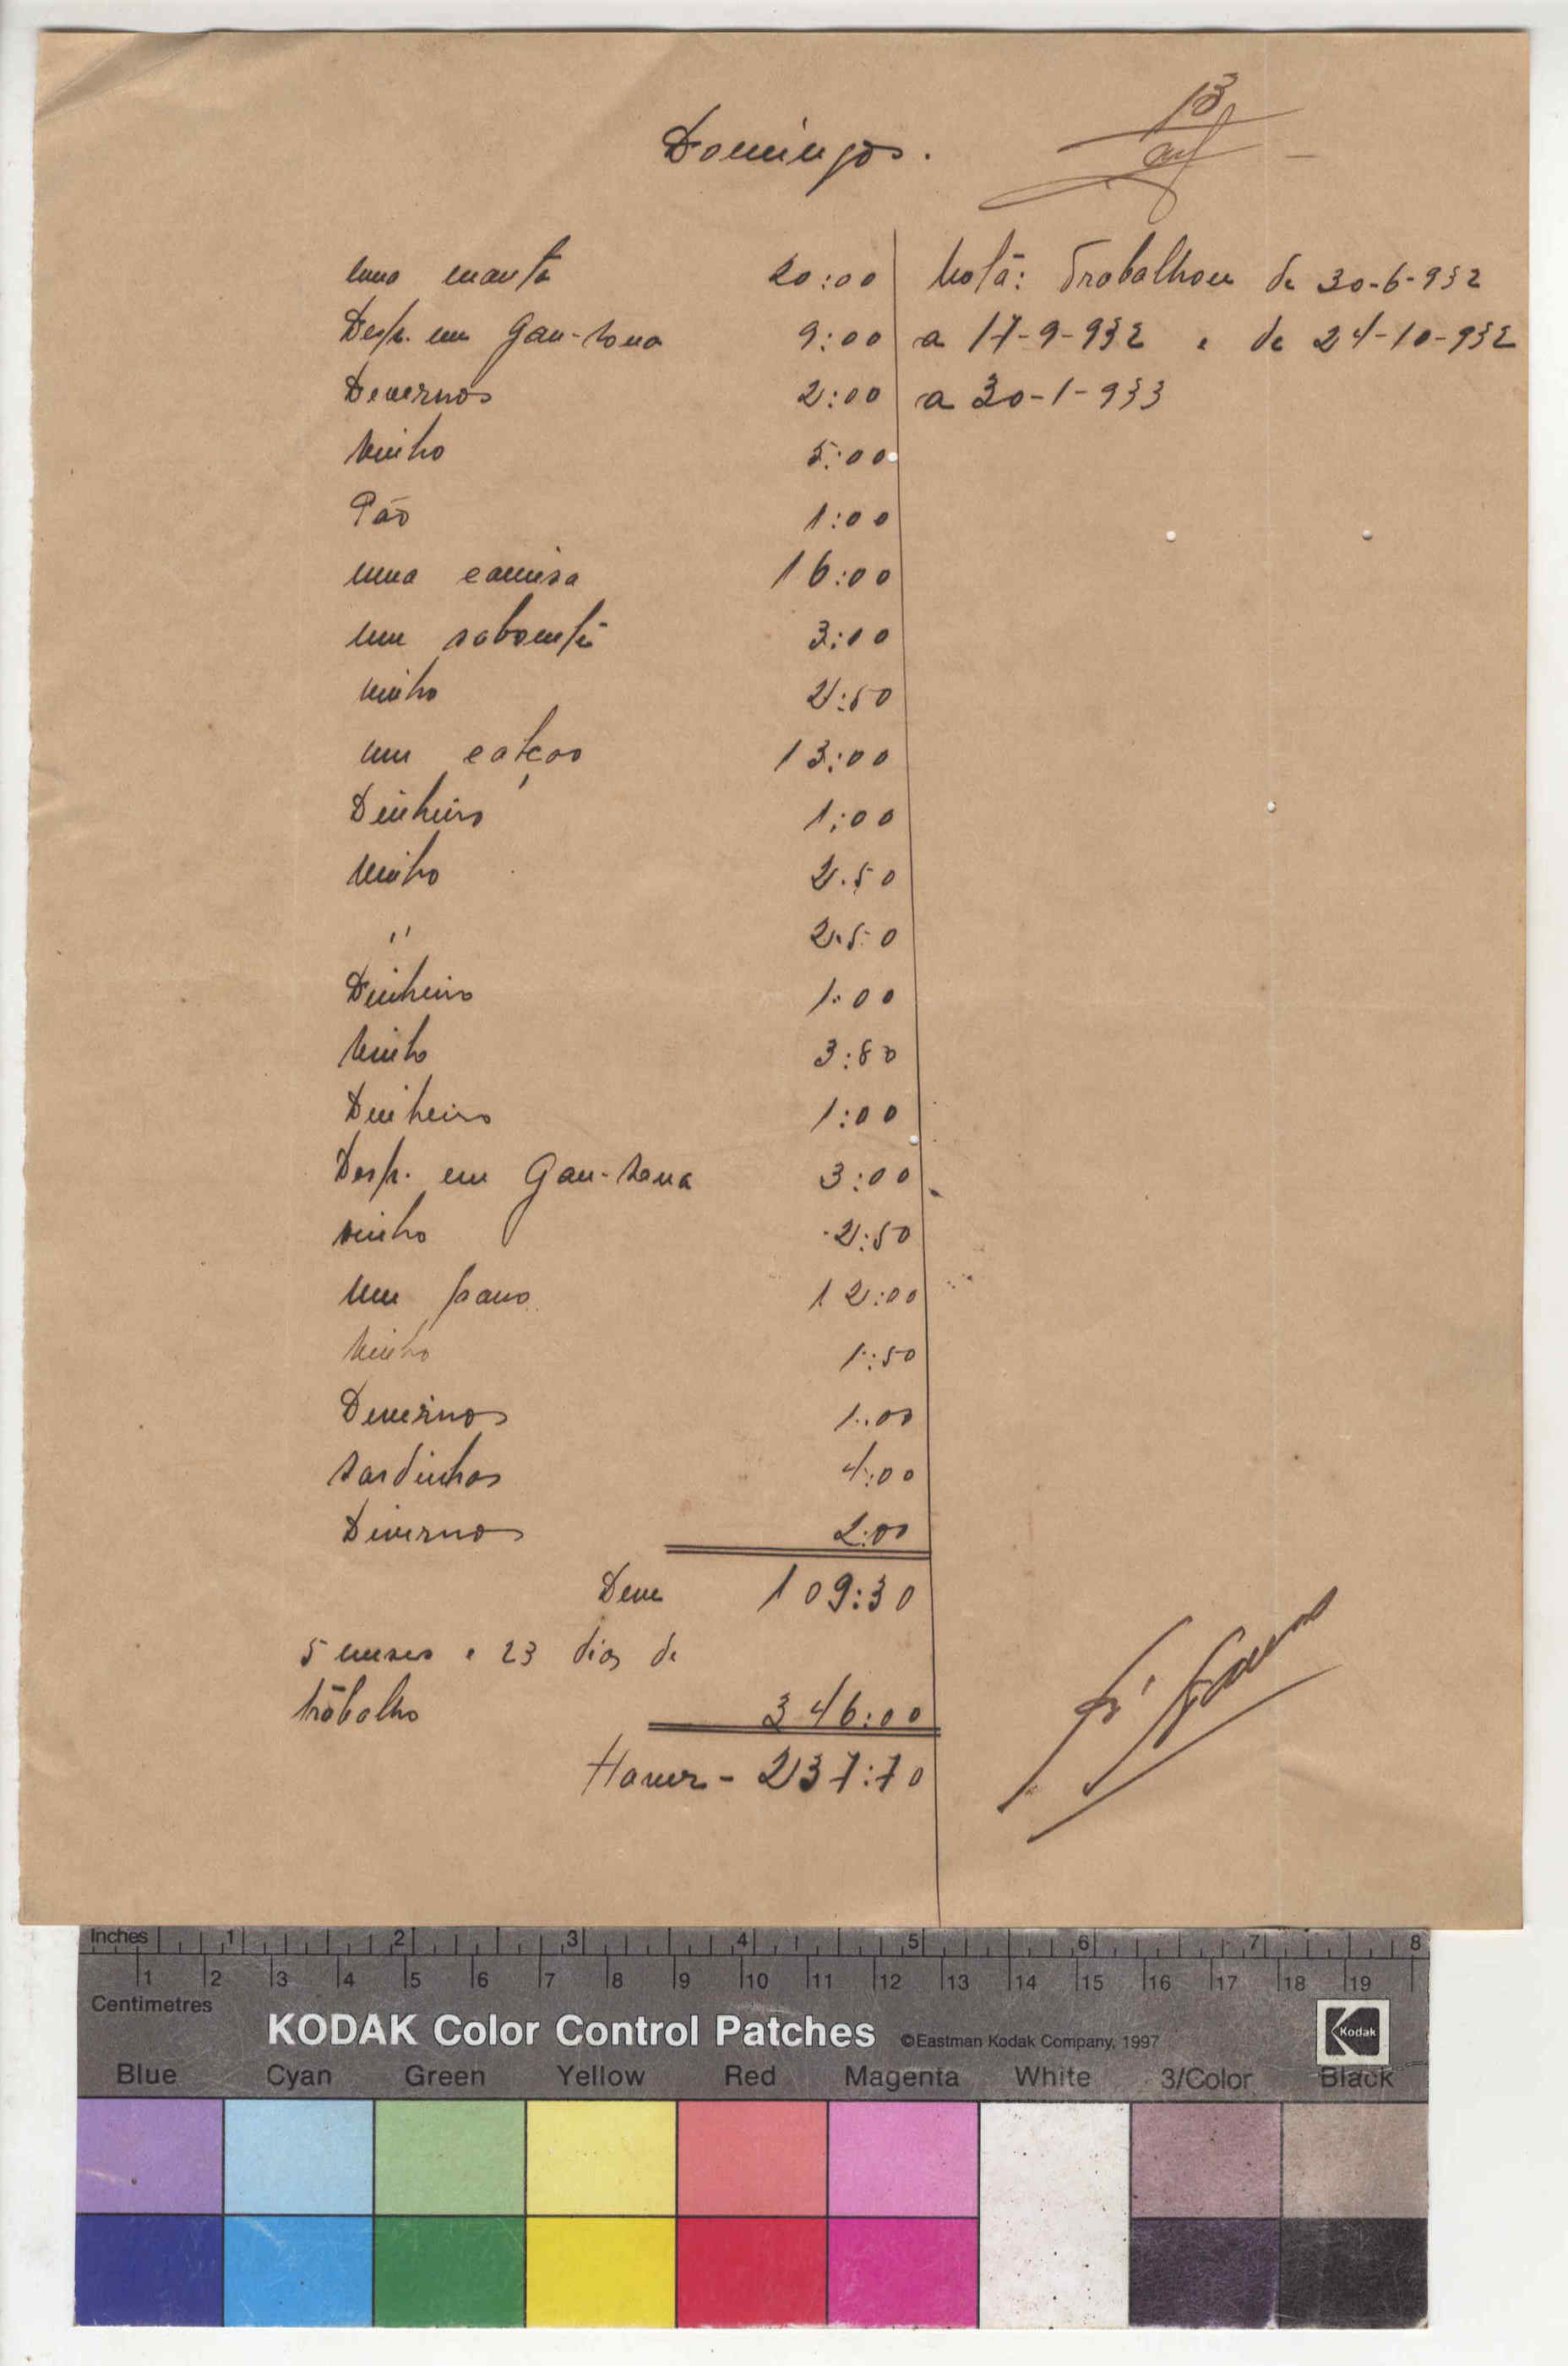 13
Domingos.
uma manta 20:00
Desp. em Gan-Sona 9:00
Deversos 2:00
Vinho 5:00
Pão 1:00
uma camisa 16:00
um sabonête 3:00
Vinho 2:50
um calção 13:00
Dinheiro 1:00
Vinho 2.50
" 2.50
Dinheiro 1:00
Vinho 3:80
Dinheiro 1:00
Desp. em Gan-Sana 3:00
vinho 2:50
Um pano 12:00
Vinho 1:50
Deversos 1:00
Sardinhas 4:00
Diversos 2:00
Deve 109:30
5 meses e 23 dias de
trabalho 346:00
Haver - 237:70
Nota: Trabalhou de 30-6-932
a 17-9-932 e de 24-10-932
a 30-1-933
Inches 1 2 3 4 5 6 7 8
1 2 3 4 5 6 7 8 9 10 11 12 13 14 15 16 17 18 19
Centimetres
KODAK Color Control Patches ©Eastman Kodak Company, 1997 Kodak
Blue Cyan Green Yellow Red Magenta White 3/Color Black